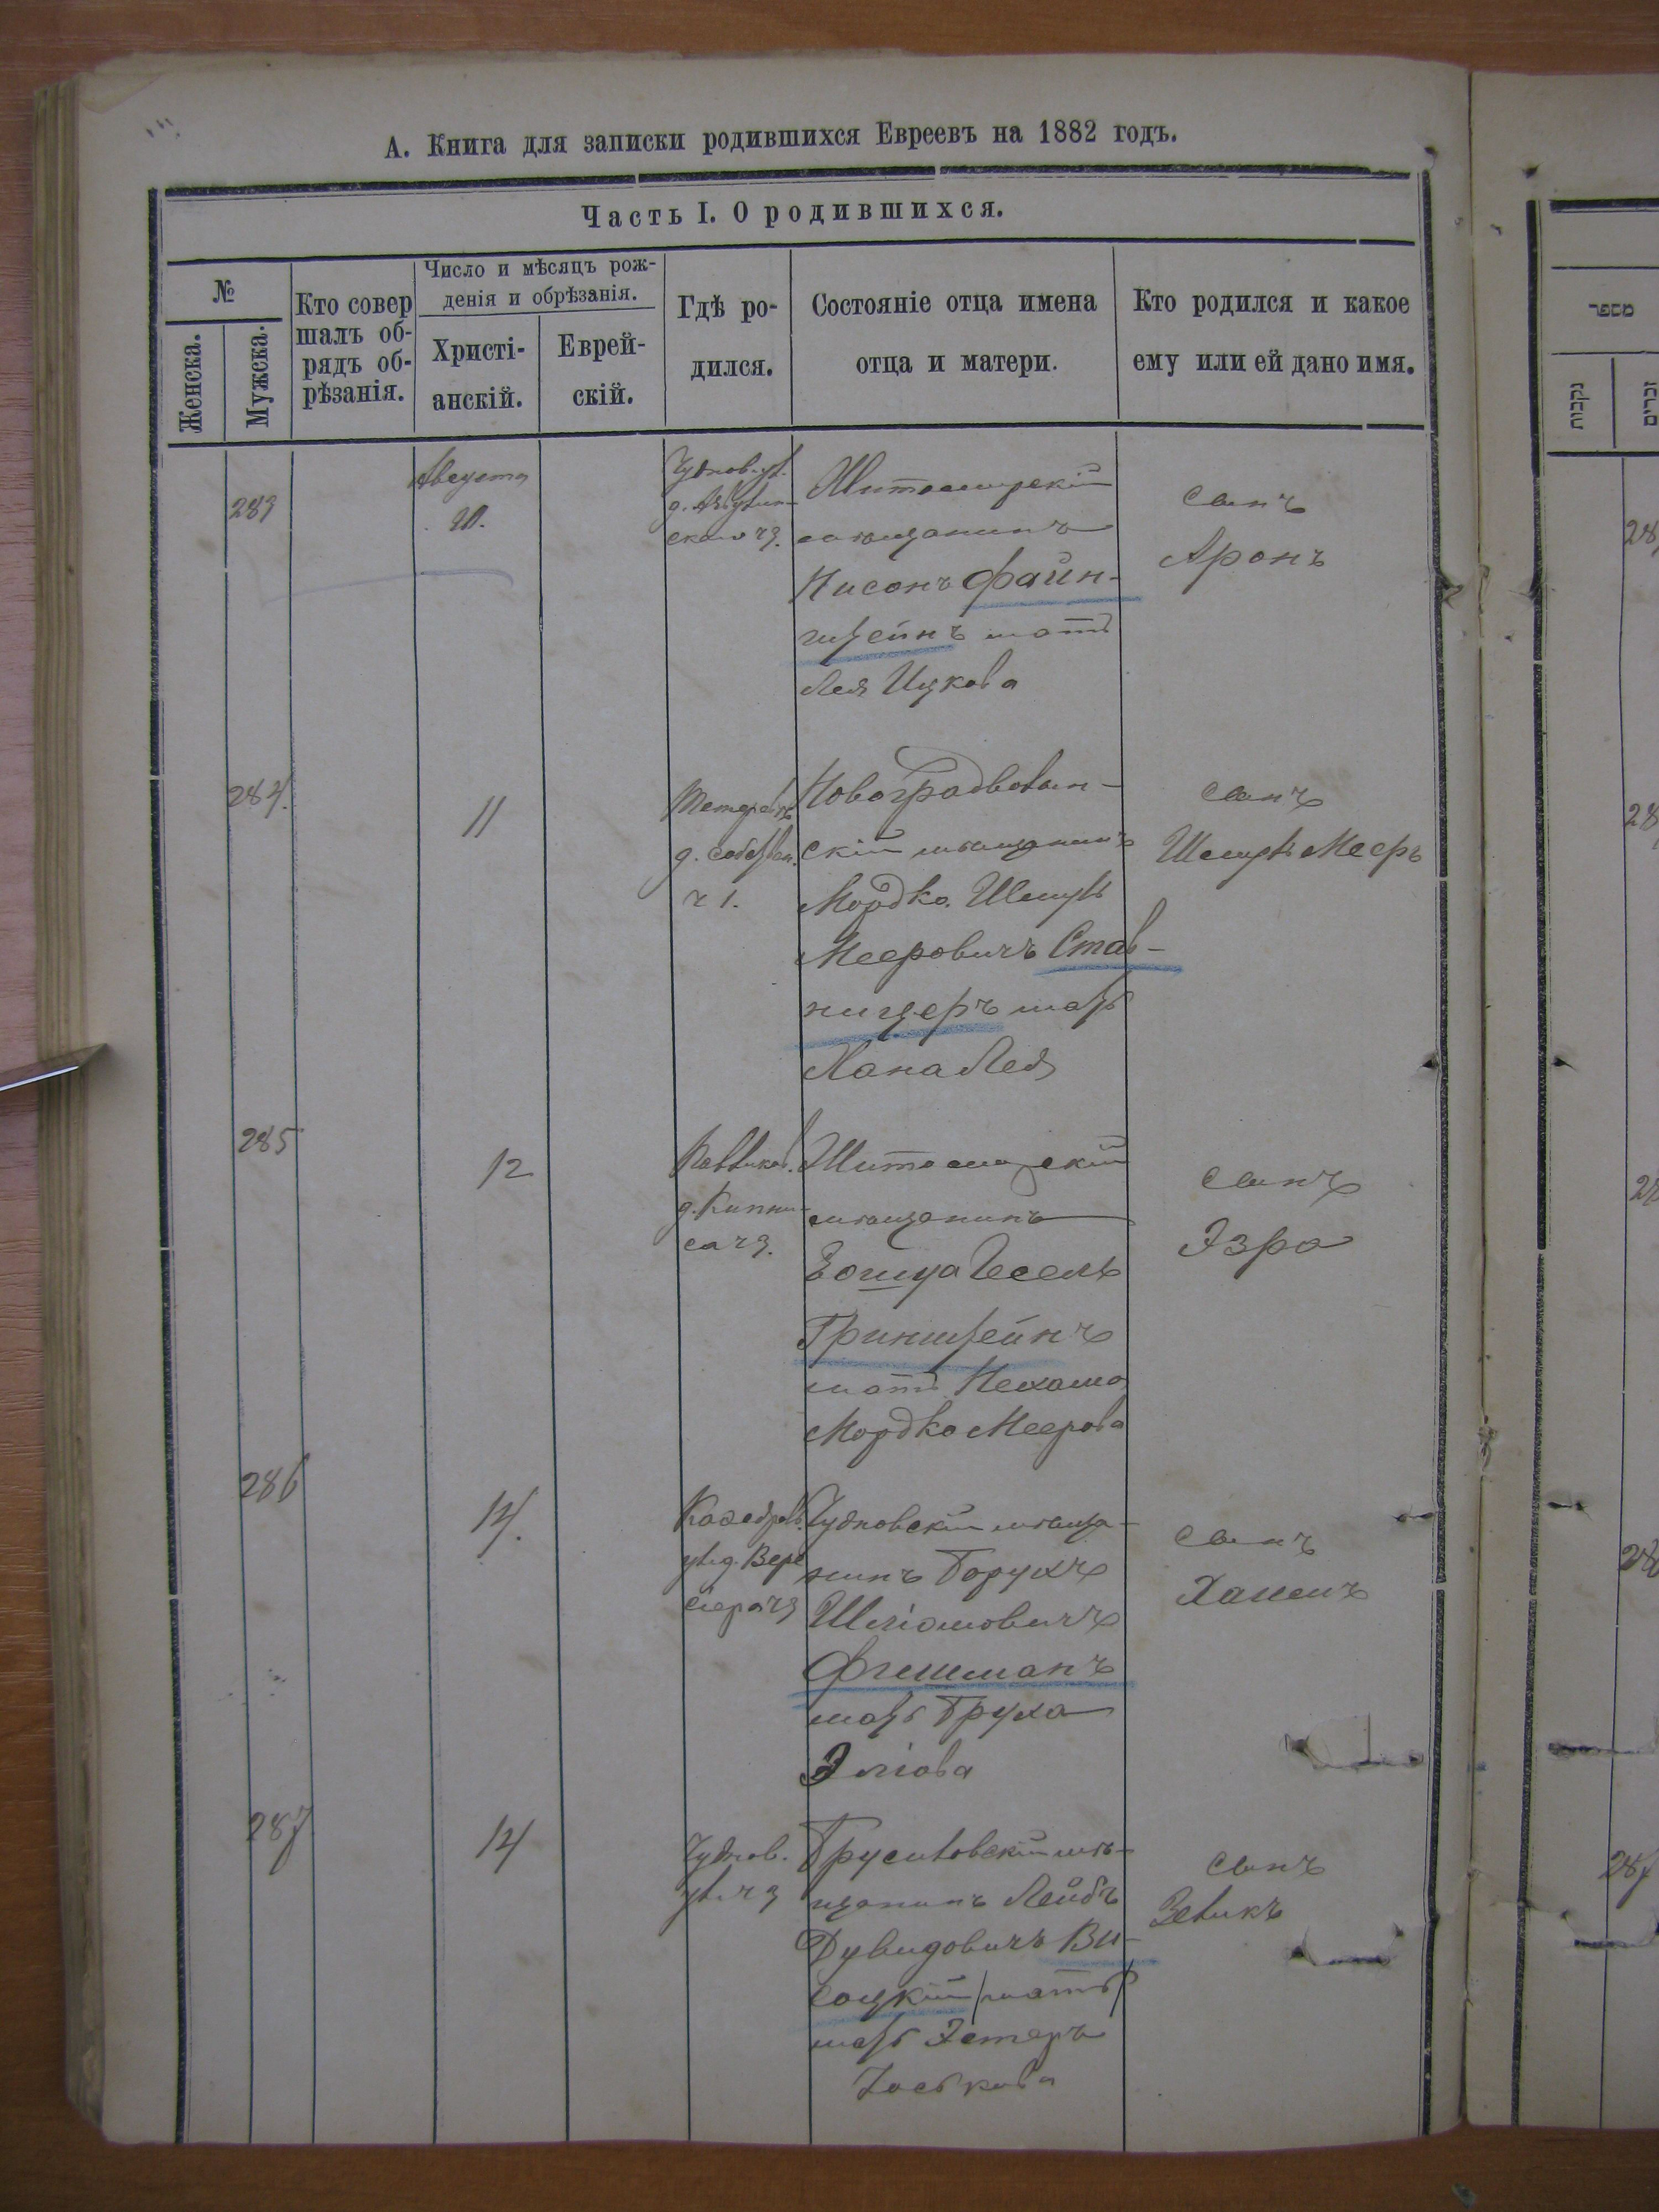 А. Книга для записки родившихся Евреевъ на 1882 годъ.
Часть I. О родившихся.
№
Женска.
Мужска.
Кто совер
шалъ об-
рядъ об-
рѣзанія.
Число и мѣсяцъ рож-
денія и обрѣзанія.
Христі-
анскій.
Еврей-
скій.
Гдѣ ро-
дился.
Состояніе отца имена
отца и матери.
Кто родился и какое
ему или ей дано имя.
283
Августа
Чудновс. ул.
Житомирскій
мѣщанинъ
Нисонъ Файн-
штейнъ мать
Лея Ицкова
сынъ
Аронъ
284.
11
д. собствен.
ч 1.
Новоградволын-
скій мѣщанинъ
Мордко Шмуль
Мееровичъ Став-
ницеръ мать
Хана Лея
сынъ
Шмуль Мееръ
285
12
д. Кипни-
са ч 3.
Житомирскій
мѣщанинъ
Іошуа Іесель
Гринштейнъ
мать Нехама
Мордко Меерова
сынъ
Эзра
286
14.
Каѳедрал.
ул. д.
Чудновскій мѣща-
нинъ Борухъ
Шліомовичъ
Фишманъ
мать Бруха
Эліова
сынъ
287
14
Чуднов.
ул. ч 3
Трусиловскій мѣ-
щанинъ Лейбъ
Дувидовичъ Ви-
соцкій /мать/
мать Эстеръ
Іоськова
сынъ
Зеликъ
מספר
נקבות
זכרים
28
28
28
28
287